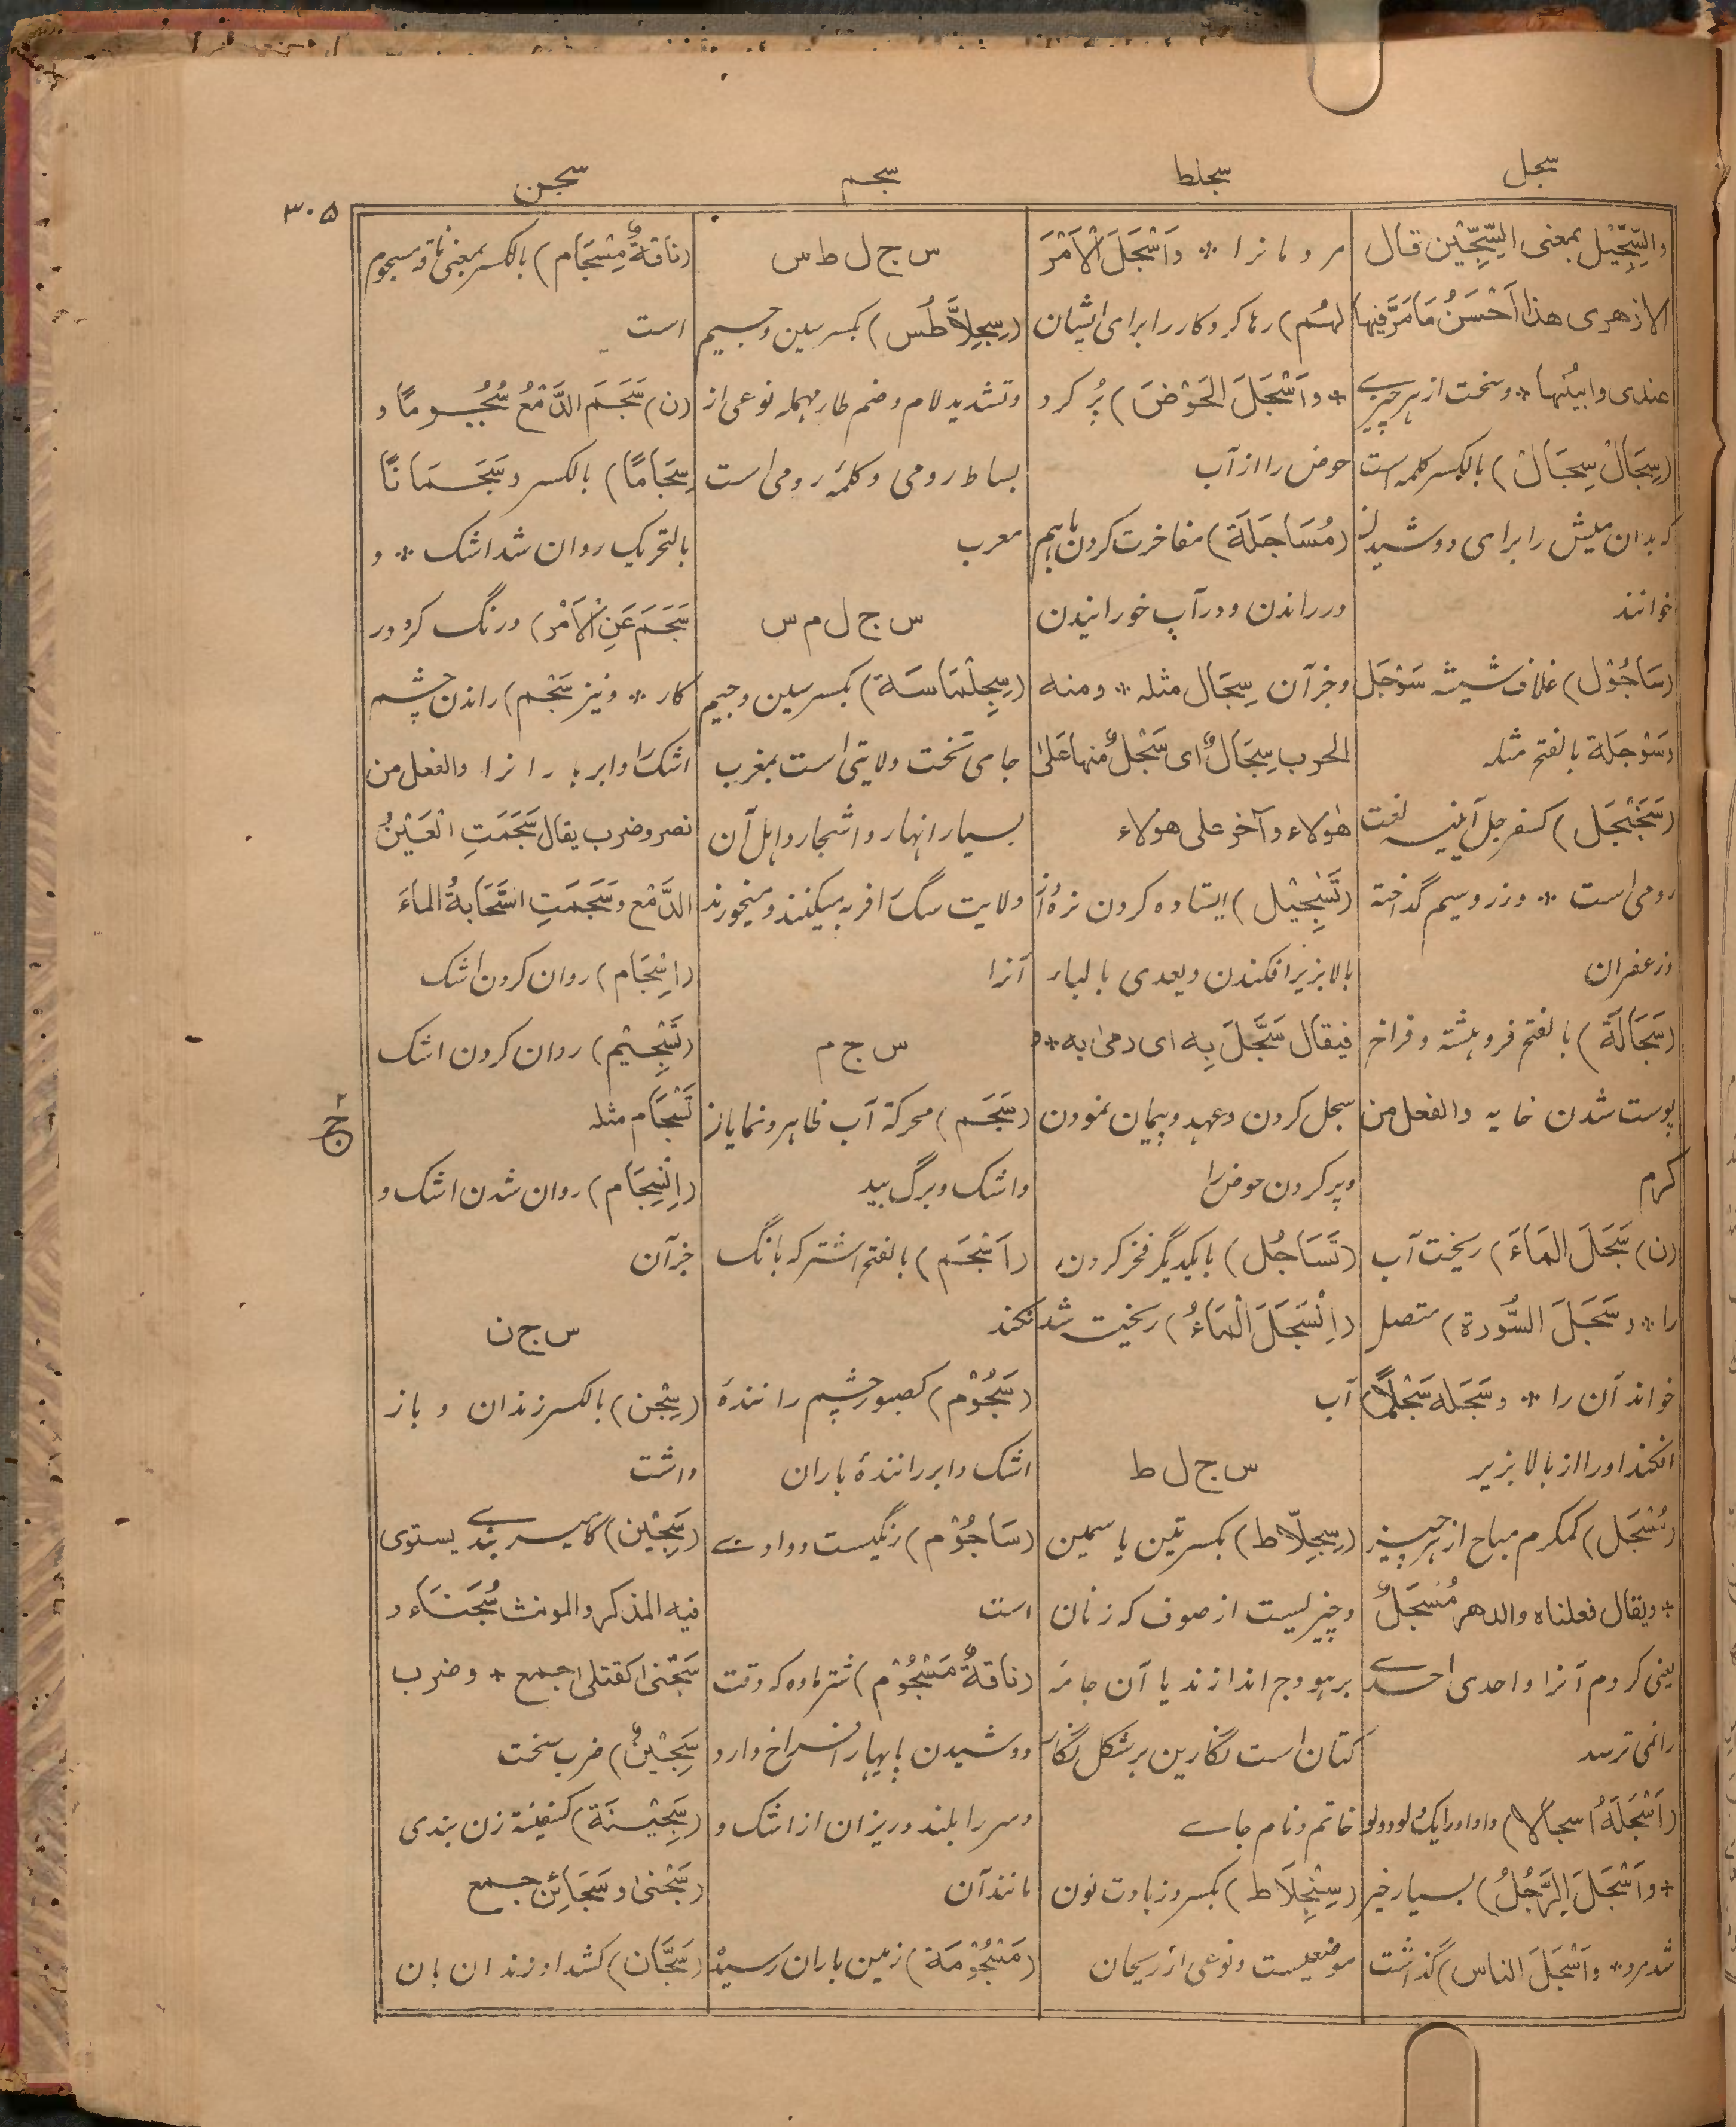 سجل
سجلط
سجم
سجن
۳۰۵
والسِّجِّیْل بمعنی السِّجِّیْن قال
الازهری هذا اَحْسَنُ مَا مَرَّ فیها
عندی وابیَنُها * وسخت از هر چیزے
(سِجَالْ سِجَالْ) بالکسر کلمه است
که بدان میش را برای دوشیدن
خوانند
(سَاجُوْل) غلاف شیشه سَوْجَل
وسَوْجَلة بالفتح مثله
(سَجَنْجَل) کسفرجل آئینه لغت
رومی است * وزر وسیم گداخته
وزعفران
(سَجَالَة) بالفتح فروهشته و فراخ
پوست شدن خایه والفعل من
کرم
(ن) سَجَلَ المَاءَ) ریخت آب
را * وسَجَلَ السُّورة) متصل
خواند آن را * وسَجَله سَجْلًا)
افکند او را از بالا بزیر
(مُسْجَل) کمکرم مباح از هر چیز
* ویقال فعلناه والدهر مُسْجَلٌ
یعنی کردم آنرا واحدی احدے
را نمی ترسد
(اَسْجَلَهُ اسجالا) داد او را یک دلو دو دلو
* واَسْجَلَ الرَّجُلُ) بسیار خیر
شد مرد * واَسْجَلَ الناس) گذاشت
مردمانرا * واَسْجَلَ الْاَمْرَ
لهُم) رها کرد کار را برای ایشان
* واَسْجَلَ الحَوْضَ) پُر کرد
حوض را از آب
(مُسَاجَلَة) مفاخرت کردن باهم
در راندن و در آب خورانیدن
وجز آن سِجَال مثله * ومنه
الحرب سِجَالٌ ای سَجْلٌ منها عَلیٰ
هٰؤلاء وآخر علی هولاء
(تَسْجِیْل) ایستاده کردن نره از
بالا بزیر افکندن ویعدی بالباء
فیقال سَجَّلَ بِه ای رمیٰ به * و
سجل کردن وعهد وپیمان نمودن
وپر کردن حوض را
(تَسَاجُل) بایکدیگر فخر کردن
(اِنْسَجَلَ الْمَاءُ) ریخت شد
آب
س ج ل ط
(سِجِلَّاط) بکسرتین یاسمین
وچیزیست از صوف که زنان
بر هودج اندازند یا آن جامه
کتان است نگارین بر شکل نگار
خاتم ونام جاے
(سِنْجِلَاط) بکسر وزیادت نون
موضعیست ونوعی از ریحان
س ج ل ط س
(سِجِلَّاطُس) بکسر سین وجیم
وتشدید لام وضم طاء مهمله نوعی از
بساط رومی وکلمهٔ رومی است
معرب
س ج ل م س
(سِجِلْمَاسَة) بکسر سین وجیم
جای تخت ولایتی است بمغرب
بسیار انهار واشجار واهل آن
ولایت سگ را فربه میکنند و میخورند
آنرا
س ج م
(سَجَم) محرکة آب ظاهر ونمایان
واشک وبرگ بید
(اَسْجَم) بالفتح اشتر که بانگ
نکند
(سَجُوْم) کصبور چشم رانندهٔ
اشک وابر رانندهٔ باران
(سَاجُوْم) رنگیست و وادے
است
(ناقةٌ مَسْجُوْم) شتر ماده که وقت
دوشیدن پایها را فراخ دارد
وسر را بلند وریزان از اشک و
مانند آن
(مَسْجُوْمَة) زمین باران رسیده
(ناقةٌ مِسْجَام) بالکسر بمعنی ناقه مسجوم
است
(ن) سَجَمَ الدَّمْعُ سُجُوماً و
سِجَامًا) بالکسر وسَجَمَانًا
بالتحریک روان شد اشک * و
سَجَمَ عَنِ الْاَمْرِ) درنگ کرد در
کار * ونیز سَجْم) راندن چشم
اشک را وابر باران را والفعل من
نصر وضرب یقال سَجَمَتِ الْعَیْنُ
الدَّمْعَ وسَجَمَتِ السَّحَابةُ الماءَ
(اِسْجَام) روان کردن اشک
(تَسْجِیْم) روان کردن اشک
تَسْجَام مثله
(اِنْسِجَام) روان شدن اشک و
جز آن
س ج ن
(سِجْن) بالکسر زندان و باز
داشت
(سَجِیْن) کامیر بندے یستوی
فیه المذکر والمونث سُجَنَاء و
سَجْنیٰ کقتلیٰ جمع * وضرب
سِجِّیْنٌ) ضرب سخت
(سَجِیْنَة) کسفینة زن بندی
(سَجْنیٰ وسَجَائِن جمع
(سَجَّان) کشداد زندان بان
۲
ج